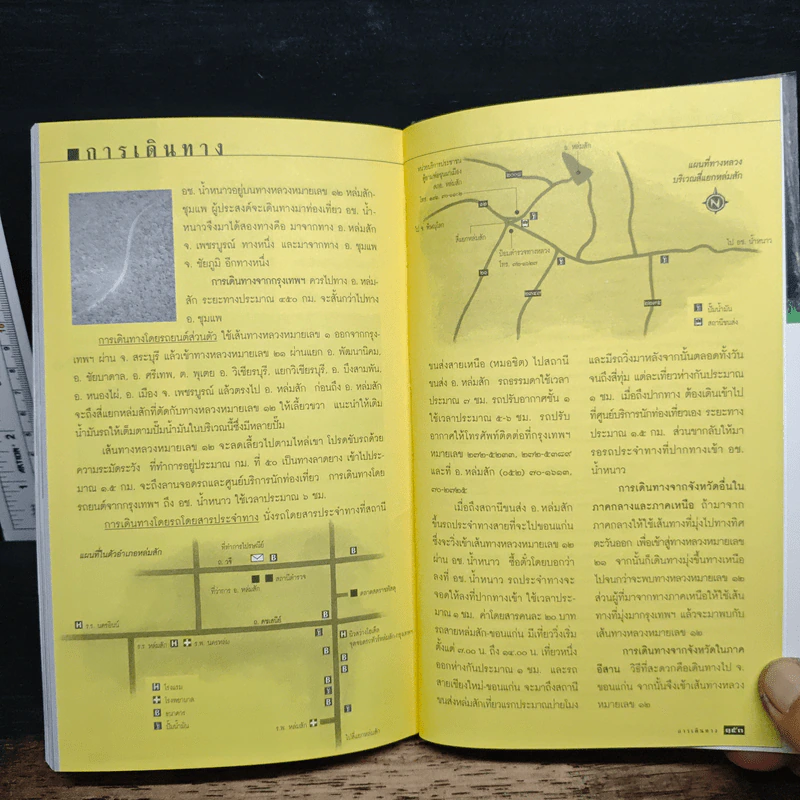 การเดินทาง
อช. น้ำหนาวอยู่บนทางหลวงหมายเลข ๑๒ หล่มสัก-
ชุมแพ ผู้ประสงค์จะเดินทางมาท่องเที่ยว อช. น้ำ-
หนาวจึงมาได้สองทางคือ มาจากทาง อ. หล่มสัก
จ. เพชรบูรณ์ ทางหนึ่ง และมาจากทาง อ. ชุมแพ
จ. ชัยภูมิ อีกทางหนึ่ง
การเดินทางจากกรุงเทพฯ ควรไปทาง อ. หล่ม-
สัก ระยะทางประมาณ ๔๕๐ กม. จะสั้นกว่าไปทาง
อ. ชุมแพ
การเดินทางโดยรถยนต์ส่วนตัว ใช้เส้นทางหลวงหมายเลข ๑ ออกจากกรุง-
เทพฯ ผ่าน จ. สระบุรี แล้วเข้าทางหลวงหมายเลข ๒๑ ผ่านแยก อ. พัฒนานิคม,
อ. ชัยบาดาล, อ. ศรีเทพ, ต. พุเตย อ. วิเชียรบุรี, แยกวิเชียรบุรี, อ. บึงสามพัน,
อ. หนองไผ่, อ. เมือง จ. เพชรบูรณ์ แล้วตรงไป อ. หล่มสัก ก่อนถึง อ. หล่มสัก
จะถึงสี่แยกหล่มสักที่ตัดกับทางหลวงหมายเลข ๑๒ ให้เลี้ยวขวา แนะนำให้เติม
น้ำมันรถให้เต็มตามปั๊มน้ำมันในบริเวณนี้ซึ่งมีหลายปั๊ม
เส้นทางหลวงหมายเลข ๑๒ จะลดเลี้ยวไปตามไหล่เขา โปรดขับรถด้วย
ความระมัดระวัง ที่ทำการอยู่ประมาณ กม. ที่ ๕๐ เป็นทางลาดยาง เข้าไปประ-
มาณ ๑.๕ กม. จะถึงลานจอดรถและศูนย์บริการนักท่องเที่ยว การเดินทางโดย
รถยนต์จากกรุงเทพฯ ถึง อช. น้ำหนาว ใช้เวลาประมาณ ๖ ชม.
การเดินทางโดยรถโดยสารประจำทาง นั่งรถโดยสารประจำทางที่สถานี
แผนที่ในตัวอำเภอหล่มสัก
ที่ทำการไปรษณีย์
ถ. วจี
B
B
ที่ว่าการ อ. หล่มสัก
สถานีตำรวจ
H
B
H
ร.ร. หล่มสัก
H
B
B
B
H
โรงแรม
โรงพยาบาล
B
ธนาคาร
ปั๊มน้ำมัน
ร.พ. หล่มสัก
ไปสี่แยกหล่มสัก
อ. หล่มสัก
แผนที่ทางหลวง
บริเวณสี่แยกหล่มสัก
N
ไป จ. พิษณุโลก
๑๒
สี่แยกหล่มสัก
ป้อมตำรวจทางหลวง
ไป อช. น้ำหนาว
๒๑
ปั๊มน้ำมัน
สถานีขนส่ง
ขนส่งสายเหนือ (หมอชิต) ไปสถานี
ขนส่ง อ. หล่มสัก รถธรรมดาใช้เวลา
ประมาณ ๗ ชม. รถปรับอากาศชั้น ๑
ใช้เวลาประมาณ ๕-๖ ชม. รถปรับ
อากาศให้โทรศัพท์ติดต่อที่กรุงเทพฯ
หมายเลข ๒๗๒-๕๒๓๓,
และที่ อ. หล่มสัก (๐๕๒) ๗๐-๑๖๑๓,
๗๐-๒๓๒๕
เมื่อถึงสถานีขนส่ง อ. หล่มสัก
ขึ้นรถประจำทางสายที่จะไปขอนแก่น
ซึ่งจะวิ่งเข้าเส้นทางหลวงหมายเลข ๑๒
ผ่าน อช. น้ำหนาว ซื้อตั๋วโดยบอกว่า
ลงที่ อช. น้ำหนาว รถประจำทางจะ
จอดให้ลงที่ปากทางเข้า ใช้เวลาประ-
มาณ ๑ ชม. ค่าโดยสารคนละ ๒๐ บาท
รถสายหล่มสัก-ขอนแก่น มีเที่ยววิ่งเริ่ม
ตั้งแต่ ๗.๐๐ น. ถึง ๑๔.๐๐ น. เที่ยวหนึ่ง
ออกห่างกันประมาณ ๑ ชม. และรถ
สายเชียงใหม่-ขอนแก่น จะมาถึงสถานี
ขนส่งหล่มสักเที่ยวแรกประมาณบ่ายโมง
และมีรถวิ่งมาหลังจากนั้นตลอดทั้งวัน
จนถึงสี่ทุ่ม แต่ละเที่ยวห่างกันประมาณ
๑ ชม. เมื่อถึงปากทาง ต้องเดินเข้าไป
ที่ศูนย์บริการนักท่องเที่ยวเอง ระยะทาง
ประมาณ ๑.๕ กม. ส่วนขากลับให้มา
รอรถประจำทางที่ปากทางเข้า อช.
น้ำหนาว
การเดินทางจากจังหวัดอื่นใน
ภาคกลางและภาคเหนือ ถ้ามาจาก
ภาคกลางให้ใช้เส้นทางที่มุ่งไปทางทิศ
ตะวันออก เพื่อเข้าสู่ทางหลวงหมายเลข
๒๑ จากนั้นก็เดินทางมุ่งขึ้นทางเหนือ
ไปจนกว่าจะพบทางหลวงหมายเลข ๑๒
ส่วนผู้ที่มาจากทางภาคเหนือให้ใช้เส้น
ทางที่มุ่งมากรุงเทพฯ แล้วจะมาพบกับ
เส้นทางหลวงหมายเลข ๑๒
การเดินทางจากจังหวัดในภาค
อีสาน วิธีที่สะดวกคือเดินทางไป จ.
ขอนแก่น จากนั้นจึงเข้าเส้นทางหลวง
หมายเลข ๑๒
การเดินทาง ๑๕๓